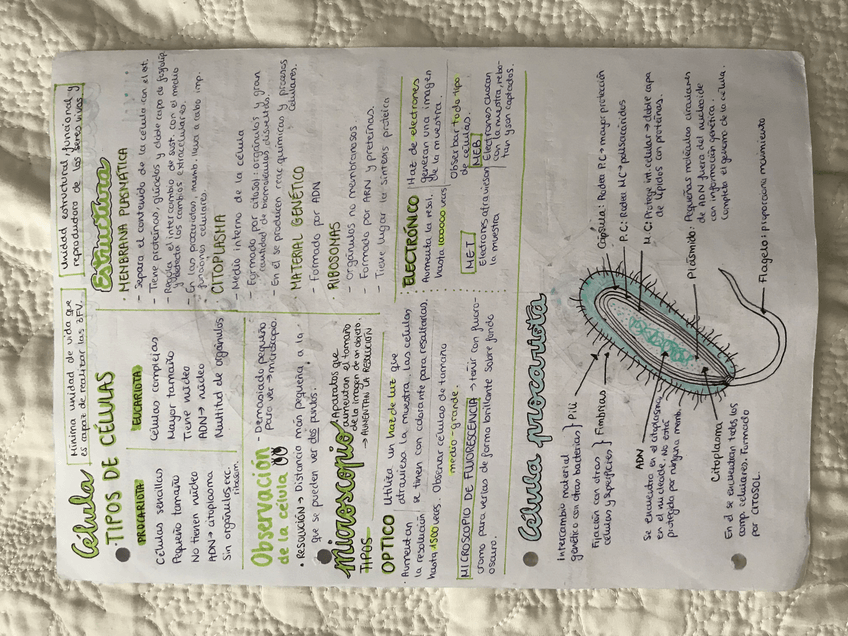 Célula
Mínima unidad de vida que
es capaz de realizar las 3FV.
Unidad estructural, funcional y
reproductora de los seres vivos.
TIPOS DE CÉLULAS
PROCARIOTA
Células sencillas
Pequeño tamaño
No tienen núcleo
ADN → citoplasma
Sin orgánulos exc.
ribosom.
EUCARIOTA
Células complejas
Mayor tamaño
Tiene núcleo
ADN → núcleo
Multitud de orgánulos
Estructura
· MEMBRANA PLASMÁTICA
- Separa el contenido de la célula con el ext.
- Tiene proteínas, glúcidos y doble capa de fosfolíp.
- Regula el intercambio de sust. con el medio
y detecta los cambios extracelulares.
- En las procariotas, memb. lleva a cabo imp.
funciones celulares.
· CITOPLASMA
- Medio interno de la célula
- Formado por citosol: orgánulos y gran
cantidad de moléculas disueltas.
- En él se producen reac químicas y procesos
celulares.
· MATERIAL GENÉTICO
- Formado por ADN
· RIBOSOMAS
- orgánulos no membranosos.
- Formado por ARN y proteínas.
- Tiene lugar la síntesis proteica
Observación
de la célula
- Demasiado pequeño
para ver → microscopio.
· RESOLUCIÓN → Distancia más pequeña, a la
que se pueden ver dos puntos.
Microscopio
Aparatos que
aumentan el tamaño
de la imagen de un objeto.
→ AUMENTAN LA RESOLUCIÓN
TIPOS
OPTICO
Utiliza un haz de luz que
atraviesa la muestra. Las células
se tiñen con colorante para resaltarlas.
· Aumentan
la resolución
hasta 1500 veces.
Observar células de tamaño
medio-grande.
MICROSCOPIO DE FLUORESCENCIA → teñir con fluoro-
cromo para verlas de forma brillante sobre fondo
oscuro.
ELECTRÓNICO
Haz de electrones
generan una imagen
de la muestra.
Aumenta la resol.
hasta 1000000 veces
Observar todo tipo
de células.
M.E.T
Electrones atraviesan
la muestra
M.E.B
Electrones chocan
con la muestra, rebo-
tan y son captados.
Célula procariota
Intercambio material
genético con otras bacterias } Pili
Fijación con otras
células y superficies } Fimbrias
ADN
Se encuentra en el citoplasma,
en el nucleoide. No está
protegido por ninguna memb.
Citoplasma
En él se encuentran todos los
comp. celulares. Formado
por CITOSOL.
Cápsula: Rodea P.C → mayor protección
P.C: Rodea MC → polisacáridos
M.C: Protege int. celular → doble capa
de lípidos con proteínas.
Plásmido: Pequeñas moléculas circulares
de ADN fuera del nucleoide
con información genética.
Completa el genoma de la célula.
Flagelo: proporciona movimiento